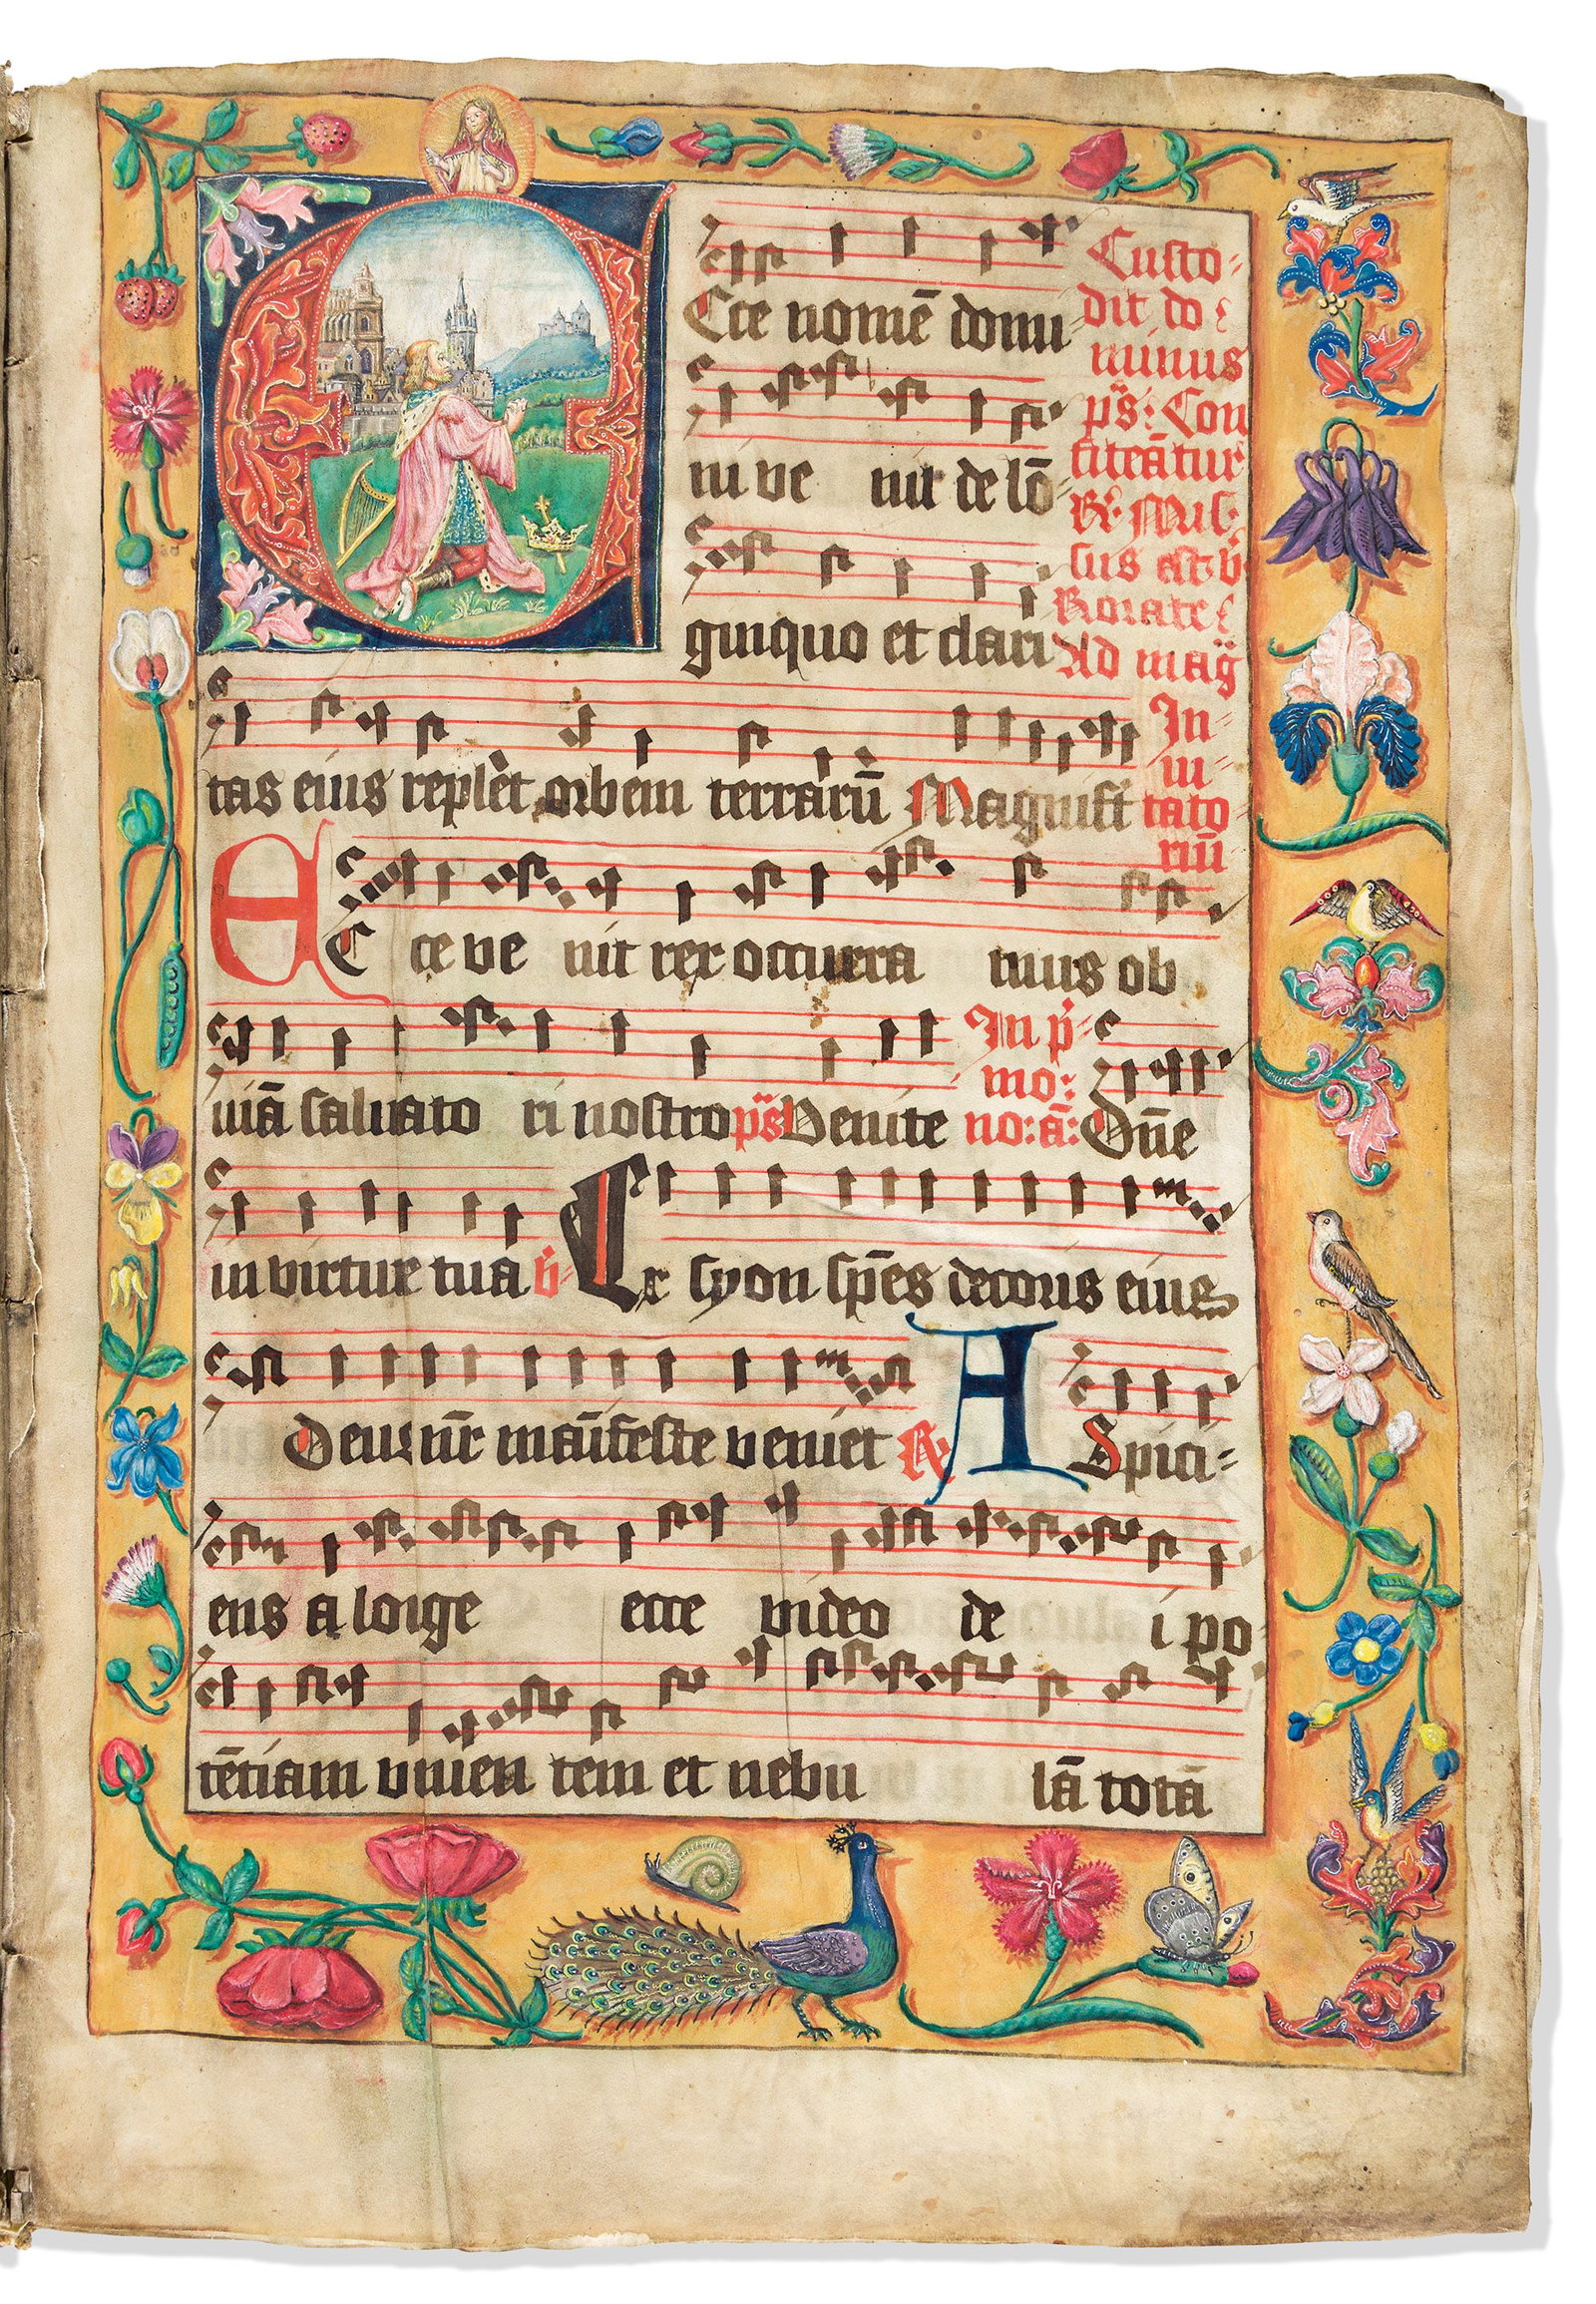 Ecce nomē domi
Custo-
dit do
minus
ni ve nit de lō-
ps: Con
fiteātur
R: Mis-
sus est v̄
ginquo et clari
Rorate
Ad mag̈
tas eius replet orbem terrarū Magnifi
In-
ui
tato
riū
EC ce ve nit rex occurra mus ob
uiā saluato ri nostro ps Venite
In p̄-
mo:
no: ā: Dn̄e
in virtute tua v̄ Ex syon spēs decoris eius
Deus nr̄ māifeste veniet R A Spici-
ens a longe ecce video de i po
tētiam vnien tem et nebu lā totā